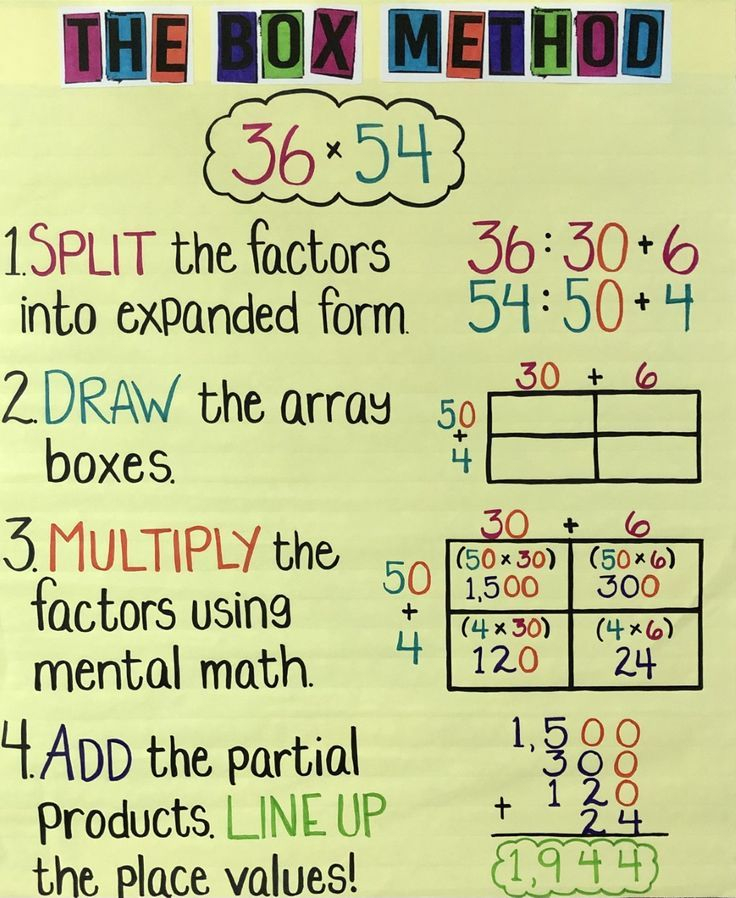 THE BOX METHOD
36 × 54
1. SPLIT the factors
into expanded form.
36 : 30 + 6
54 : 50 + 4
2. DRAW the array
boxes.
30 + 6
50
+
4
3. MULTIPLY the
factors using
mental math.
30 + 6
50
+
4
(50 × 30) (50 × 6)
1,500 300
(4 × 30) (4 × 6)
120 24
4. ADD the partial
Products. LINE UP
the place values!
1,500
300
120
+ 24
1,944